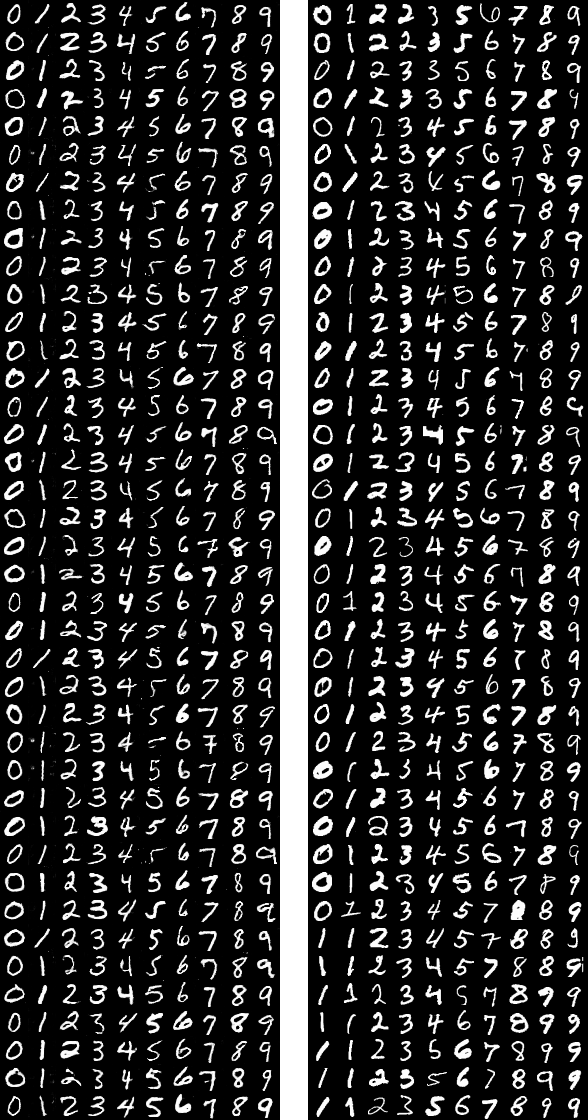 0 1 2 3 4 5 6 7 8 9
0 1 2 3 4 5 6 7 8 9
0 1 2 3 4 5 6 7 8 9
0 1 2 3 4 5 6 7 8 9
0 1 2 3 4 5 6 7 8 9
0 1 2 3 4 5 6 7 8 9
0 1 2 3 4 5 6 7 8 9
0 1 2 3 4 5 6 7 8 9
0 1 2 3 4 5 6 7 8 9
0 1 2 3 4 5 6 7 8 9
0 1 2 3 4 5 6 7 8 9
0 1 2 3 4 5 6 7 8 9
0 1 2 3 4 5 6 7 8 9
0 1 2 3 4 5 6 7 8 9
0 1 2 3 4 5 6 7 8 9
0 1 2 3 4 5 6 7 8 9
0 1 2 3 4 5 6 7 8 9
0 1 2 3 4 5 6 7 8 9
0 1 2 3 4 5 6 7 8 9
0 1 2 3 4 5 6 7 8 9
0 1 2 3 4 5 6 7 8 9
0 1 2 3 4 5 6 7 8 9
0 1 2 3 4 5 6 7 8 9
0 1 2 3 4 5 6 7 8 9
0 1 2 3 4 5 6 7 8 9
0 1 2 3 4 5 6 7 8 9
0 1 2 3 4 5 6 7 8 9
0 1 2 3 4 5 6 7 8 9
0 1 2 3 4 5 6 7 8 9
0 1 2 3 4 5 6 7 8 9
0 1 2 3 4 5 6 7 8 9
0 1 2 3 4 5 6 7 8 9
0 1 2 3 4 5 6 7 8 9
0 1 2 3 4 5 6 7 8 9
0 1 2 3 4 5 6 7 8 9
0 1 2 3 4 5 6 7 8 9
0 1 2 3 4 5 6 7 8 9
0 1 2 3 4 5 6 7 8 9
0 1 2 3 4 5 6 7 8 9
0 1 2 3 4 5 6 7 8 9
0 1 2 2 3 5 6 7 8 9
0 1 2 2 3 5 6 7 8 9
0 1 2 3 3 5 6 7 8 9
0 1 2 3 3 5 6 7 8 9
0 1 2 3 4 5 6 7 8 9
0 1 2 3 4 5 6 7 8 9
0 1 2 3 4 5 6 7 8 9
0 1 2 3 4 5 6 7 8 9
0 1 2 3 4 5 6 7 8 9
0 1 2 3 4 5 6 7 8 9
0 1 2 3 4 5 6 7 8
0 1 2 3 4 5 6 7 8 9
0 1 2 3 4 5 6 7 8 9
0 1 2 3 4 5 6 7 8 9
0 1 2 3 4 5 6 7 8
0 1 2 3 4 5 6 7 8 9
0 1 2 3 4 5 6 7 8 9
0 1 2 3 4 5 6 7 8 9
0 1 2 3 4 5 6 7 8 9
0 1 2 3 4 5 6 7 8 9
0 1 2 3 4 5 6 7 8 9
0 1 2 3 4 5 6 7 8 9
0 1 2 3 4 5 6 7 8 9
0 1 2 3 4 5 6 7 8 9
0 1 2 3 4 5 6 7 8 9
0 1 2 3 4 5 6 7 8 9
0 1 2 3 4 5 6 7 8 9
0 1 2 3 4 5 6 7 8 9
0 1 2 3 4 5 6 7 8 9
0 1 2 3 4 5 6 7 8 9
0 1 2 3 4 5 6 7 8 9
0 1 2 3 4 5 6 7 8 9
0 1 2 3 4 5 7 8 8 9
1 1 2 3 4 5 7 8 8 9
1 1 2 3 4 5 7 8 8 9
1 1 2 3 4 5 7 8 9 9
1 1 2 3 4 6 7 8 9 9
1 1 2 3 5 6 7 8 9 9
1 1 2 3 5 6 7 8 9 9
1 1 2 3 5 6 7 8 9 9